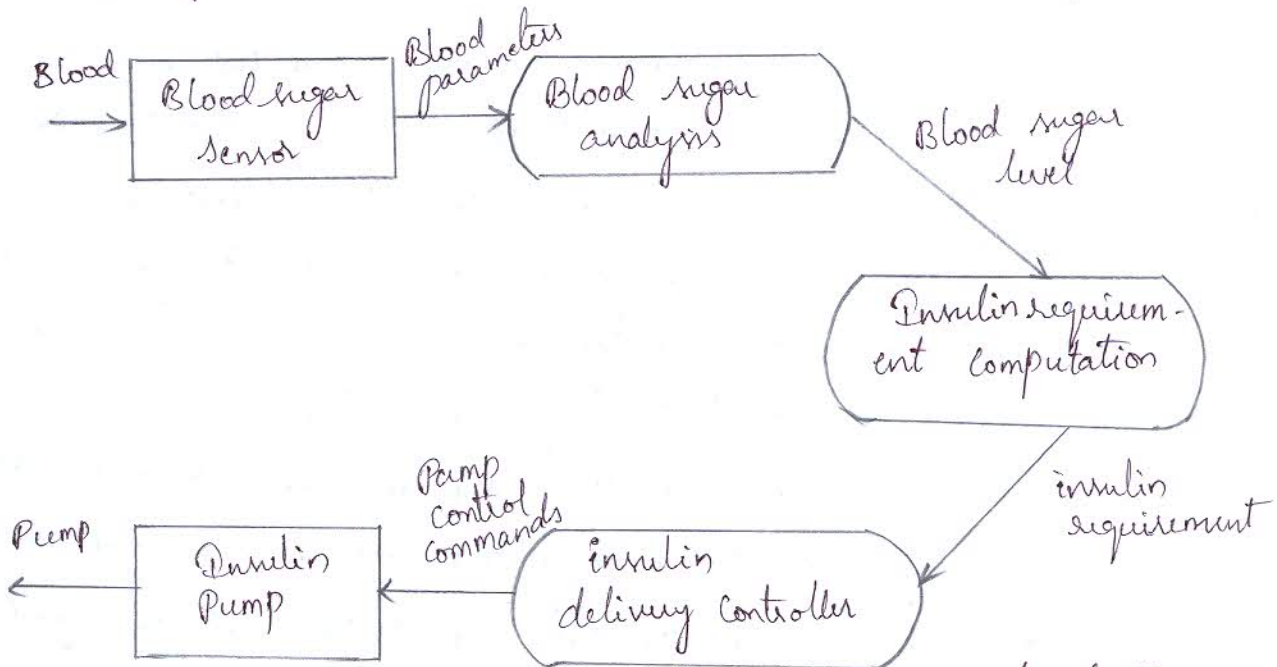 Blood
Blood sugar
sensor
Blood
parameters
Blood sugar
analysis
Blood sugar
level
Insulin requirem-
ent computation
insulin
requirement
insulin
delivery controller
Pump
control
commands
Insulin
Pump
Pump